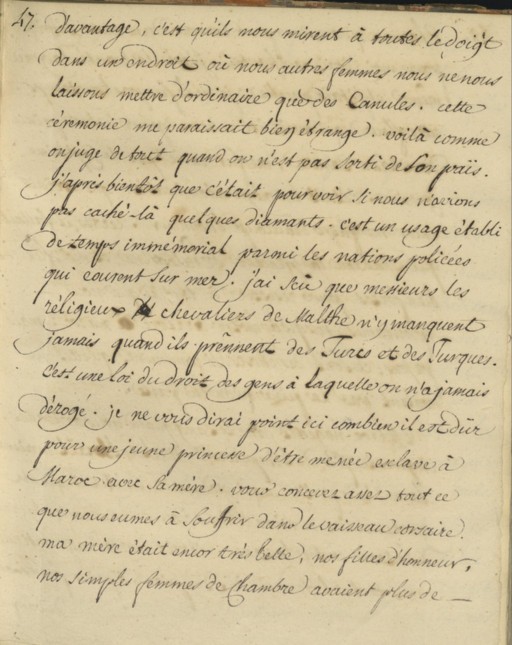 47. d'avantage, c'est qu'ils nous mirent à toutes le doigt
dans un endroit où nous autres femmes nous ne nous
laissons mettre d'ordinaire que des Canules. cette
céremonie me paraissait bien étrange. voilà comme
on juge de tout quand on n'est pas sorti de son païs.
j'apris bientôt que c'était pour voir si nous n'avions
pas caché-là quelques diamants. c'est un usage établi
de temps immémorial parmi les nations policées
qui courent sur mer. j'ai scu que messieurs les
réligieux chevaliers de Malthe n'y manquent
jamais quand ils prênnent des Turcs et des Turques.
c'est une loi du droit des gens à laquelle on n'a jamais
dérogé. je ne vous dirai point ici combien il est dûr
pour une jeune princesse d'être menée esclave à
Maroc avec sa mère. vous concevez assez tout ce
que nous eumes à souffrir dans le vaisseau corsaire.
ma mère était encor très belle, nos filles d'honneur,
nos simples femmes de Chambre avaient plus de —